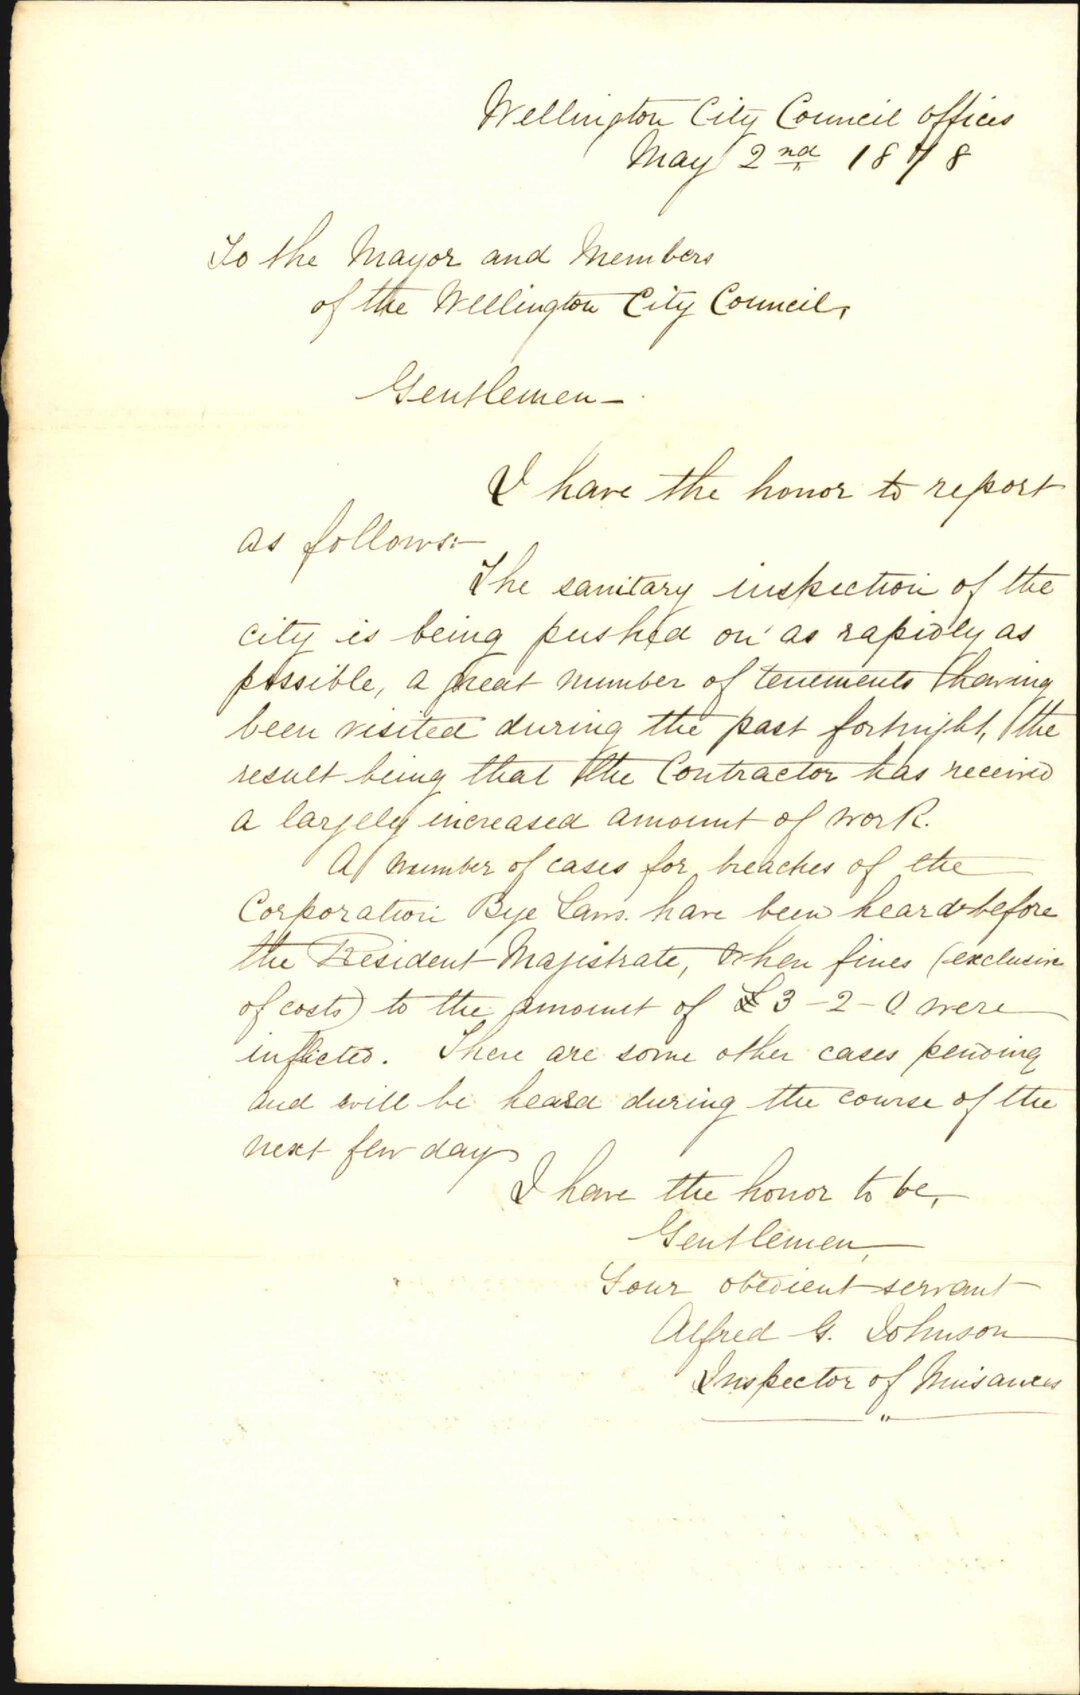 Wellington City Council Offices
May 2nd 1878
To the Mayor and Members
of the Wellington City Council,
Gentlemen —
I have the honor to report
as follows:—
The sanitary inspection of the
city is being pushed on as rapidly as
possible, a great number of tenements having
been visited during the past fortnight, the
result being that the Contractor has received
a largely increased amount of work.
A number of cases for breaches of the
Corporation Bye Laws. have been heard before
the Resident Magistrate, when fines (exclusive
of costs) to the amount of £3-2-0 were
inflicted. There are some other cases pending
and will be heard during the course of the
next few days
I have the honor to be,
Gentlemen,
Your obedient servant
Alfred G. Johnson
Inspector of Nuisances